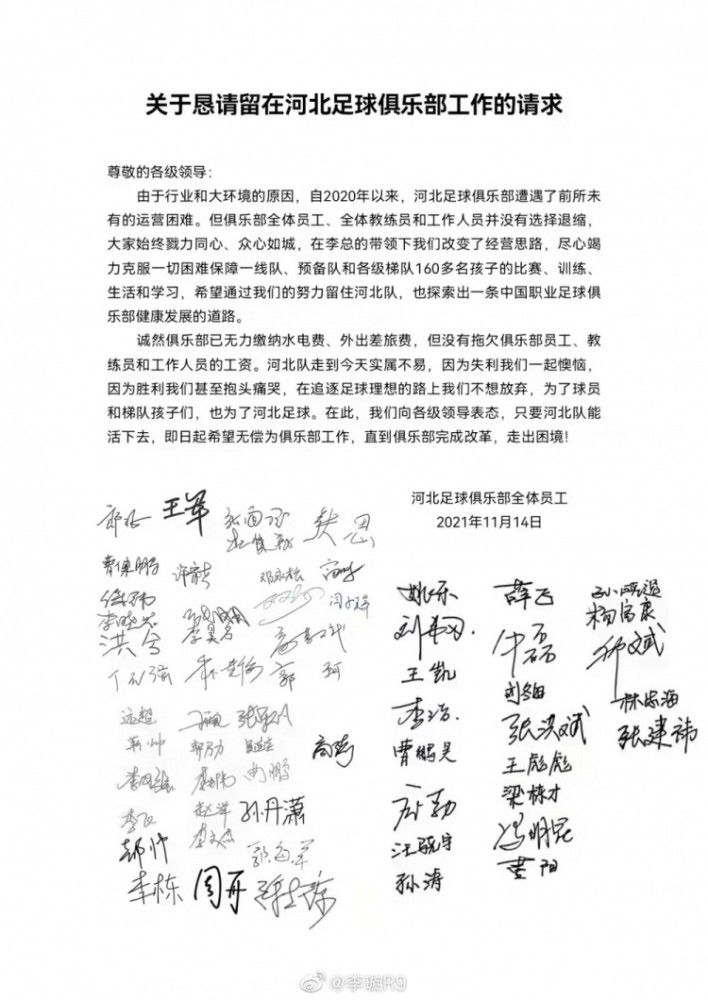 关于恳请留在河北足球俱乐部工作的请求
尊敬的各级领导：
由于行业和大环境的原因，自2020年以来，河北足球俱乐部遭遇了前所未
有的运营困难。但俱乐部全体员工、全体教练员和工作人员并没有选择退缩，
大家始终戮力同心、众心如城，在李总的带领下我们改变了经营思路，尽心竭
力克服一切困难保障一线队、预备队和各级梯队160多名孩子的比赛、训练、
生活和学习，希望通过我们的努力留住河北队，也探索出一条中国职业足球俱
乐部健康发展的道路。
诚然俱乐部已无力缴纳水电费、外出差旅费，但没有拖欠俱乐部员工、教
练员和工作人员的工资。河北队走到今天实属不易，因为失利我们一起懊恼，
因为胜利我们甚至抱头痛哭，在追逐足球理想的路上我们不想放弃，为了球员
和梯队孩子们，也为了河北足球。在此，我们向各级领导表态，只要河北队能
活下去，即日起希望无偿为俱乐部工作，直到俱乐部完成改革，走出困境！
河北足球俱乐部全体员工
2021年11月14日
王军
姚乐 薛飞
杨富良
洪兮
王凯
郭珂
李浩
张洪斌 林忠海
曹鹏昊 张建祎
王彪彪
梁栋才
孙丹潇
汪晓宇 冯明昆
郝帅
孙涛 黄阳
李栋 周舟
@李璇R9